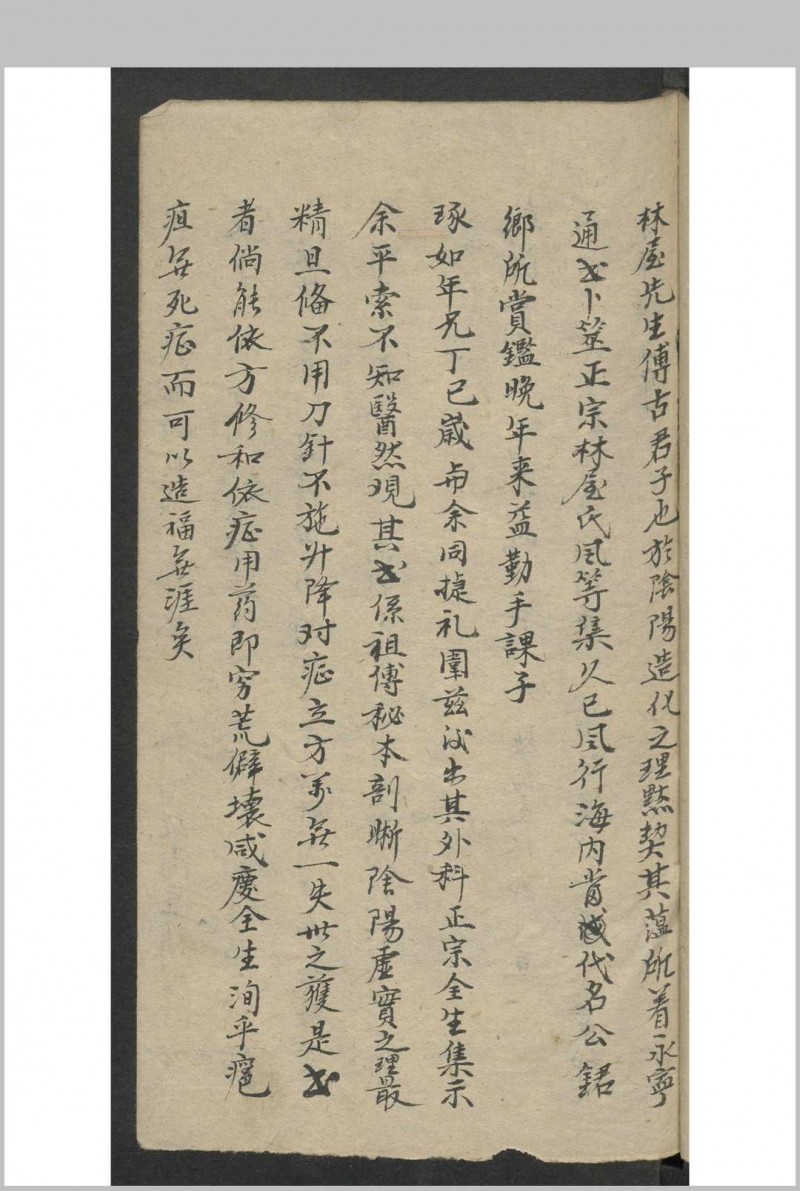 林屋先生傅古君子也於陰陽造化之理黙契其蕴所着永寧
通书卜筮正宗林屋氏风等集久已风行海内当代名公鋸
鄉所賞鑑晚年来益勤手課子
琢如年兄丁巳歲与余同捷礼圍兹以出其外科正宗全生集示
余平索不知醫然观其书係祖傅秘本剖晣陰陽虚實之理最
精且俻不用刀針不施升降对症立方万無一失世之獲是书
者倘能依方修和依症用药即穷荒僻壤咸慶全生洵乎瘡
疽無死症而可以造福無涯矣